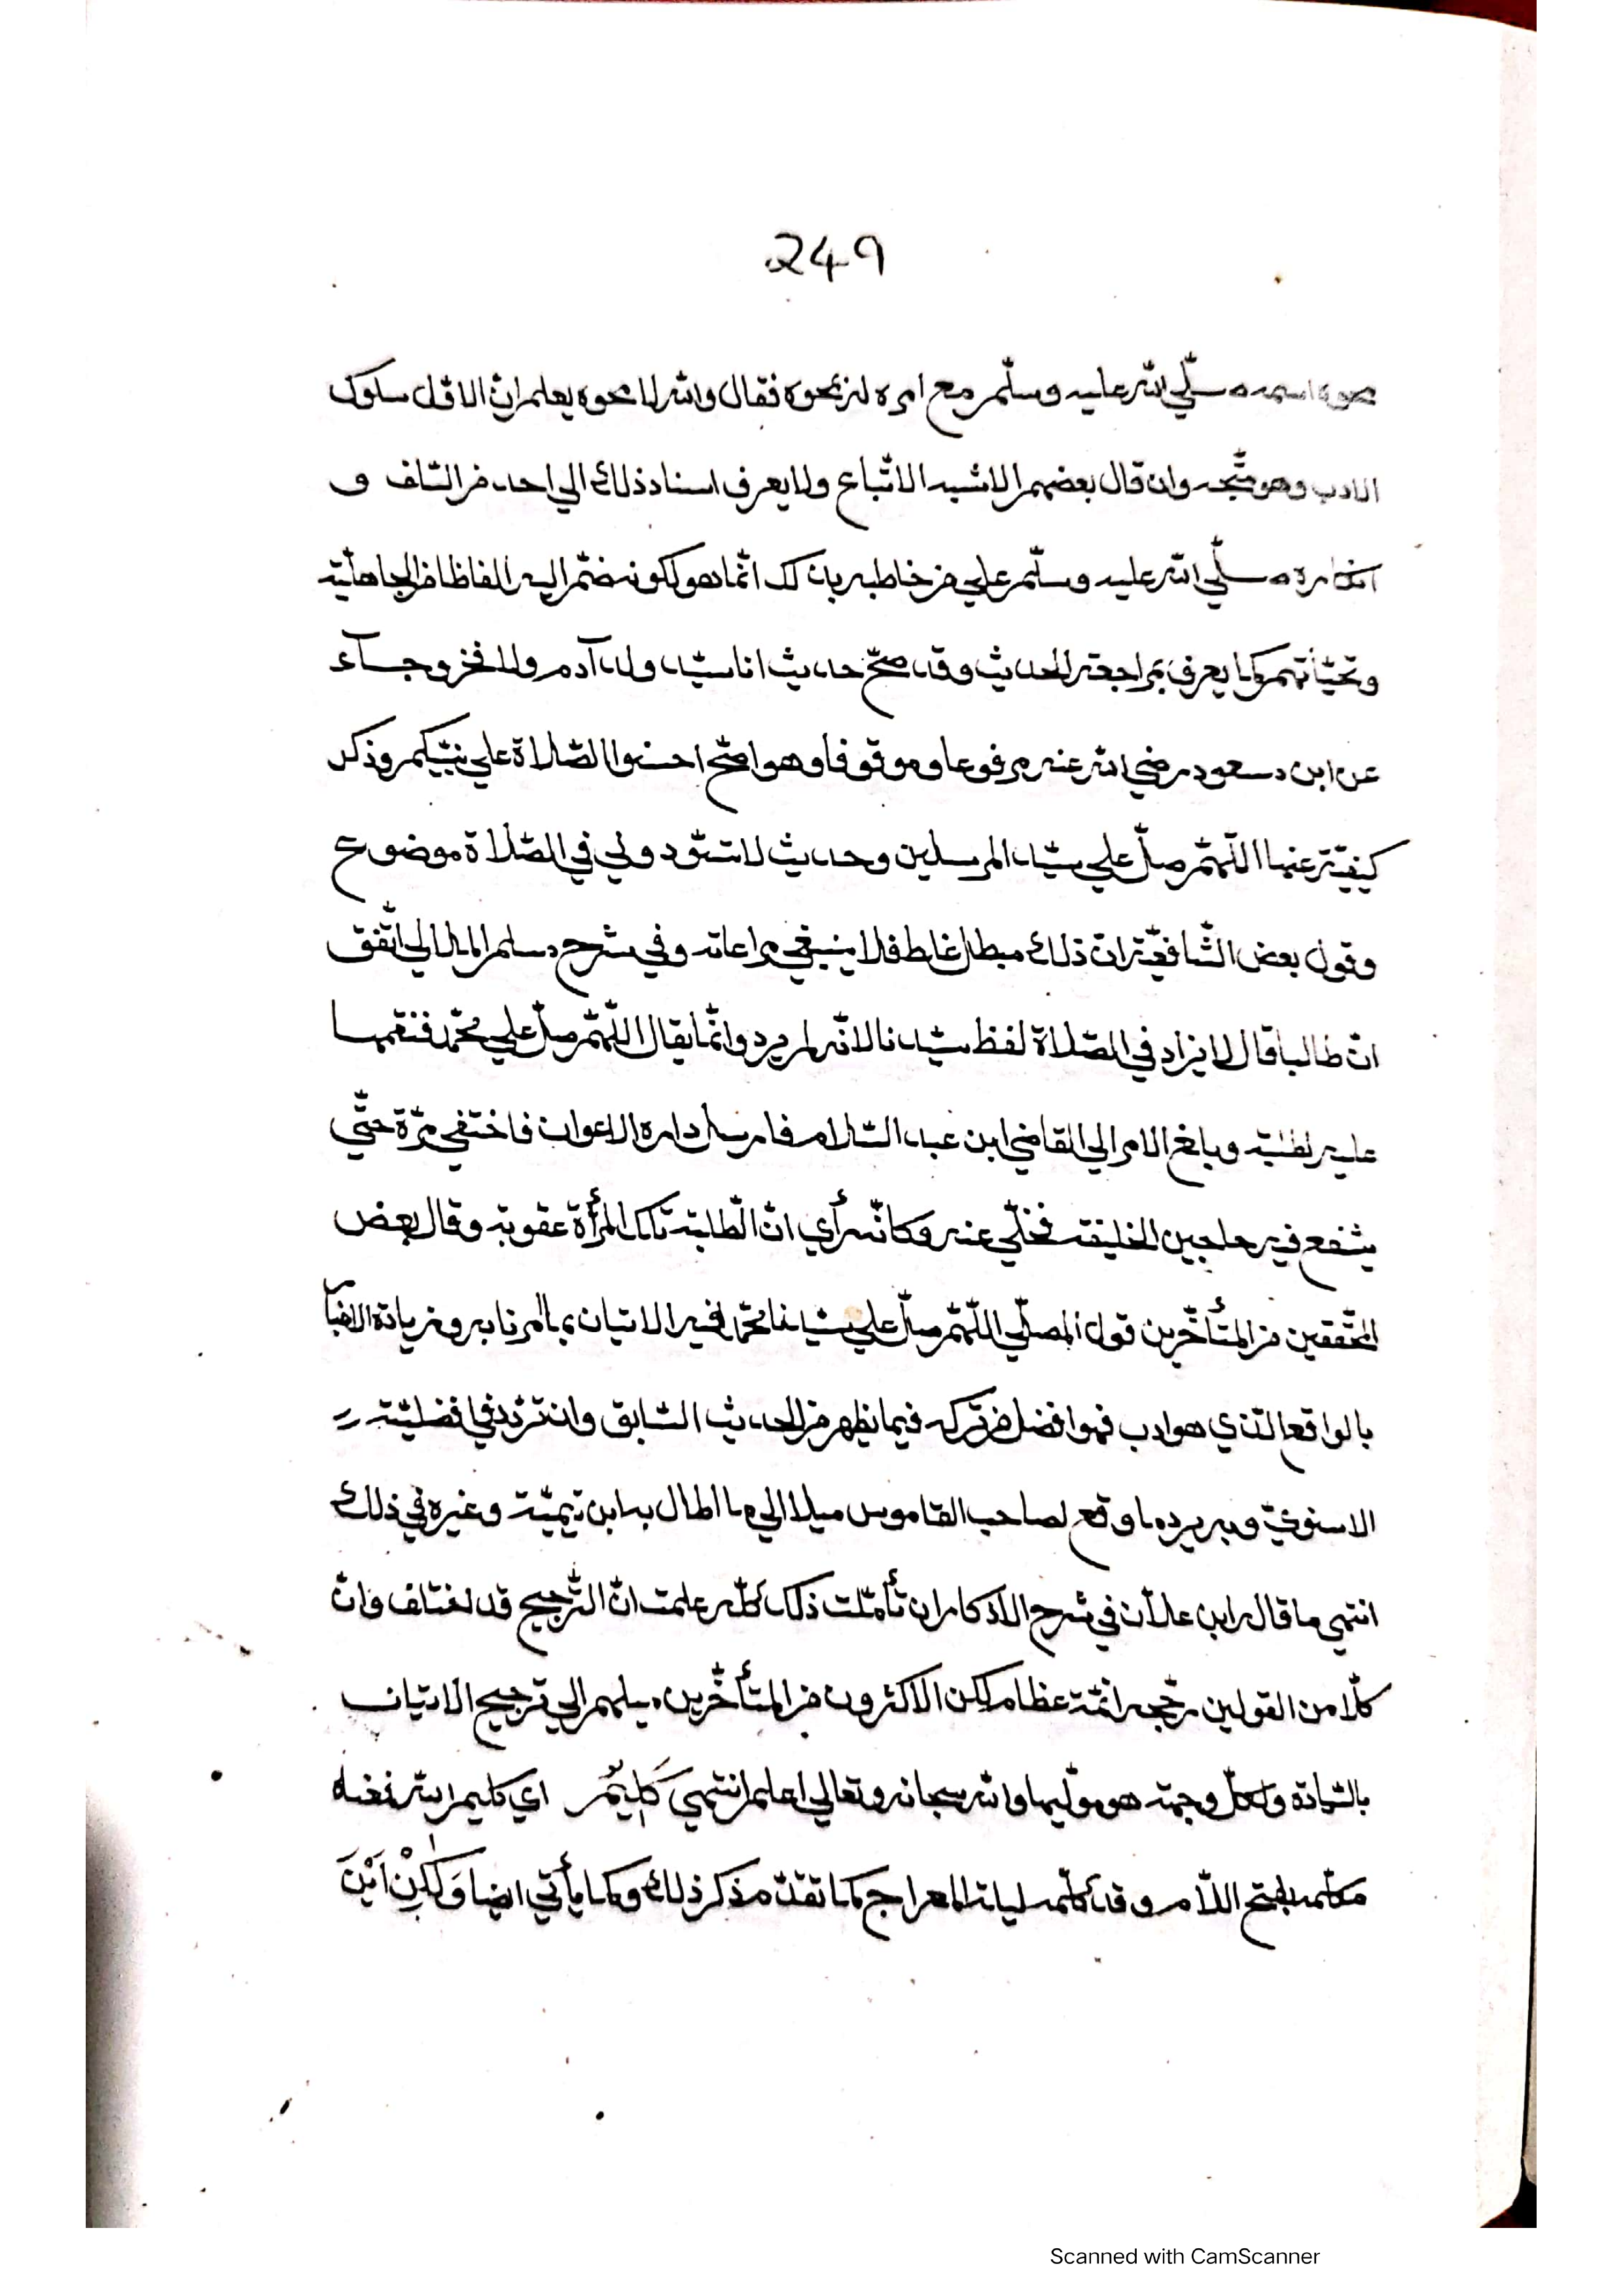 249
محوه اسمه صلّي الله عليه وسلّم مع امره له بمحوه فقال والله لا امحوه يعلم انّ الاوّل سلوك
الادب وهو متّجه وان قال بعضهم الاشبه الاتّباع ولا يعرف اسناد ذلك الي احد من السّلف و
انكاره صلّي الله عليه وسلّم علي من خاطبه بذلك انّما هو لكونه ضمّ اليه الفاظا من الجاهليّة
وتحيّاتهم كما يعرف بمراجعة الحديث وقد صحّ حديث انا سيّد ولد آدم ولا فخر وجآء
عن ابن مسعود رضي الله عنه مرفوعا وموقوفا وهو اصحّ احسنوا الصّلاة علي نبيّكم وذكر
كيفيّة عنها اللّهمّ صلّ علي سيّد المرسلين وحديث لا تسوّدوني في الصّلاة موضوع
وقول بعض الشّافعيّة انّ ذلك مبطل غلط فلا ينبغي مراعاته وفي شرح مسلم الابي اتّفق
انّ طالبا قال لا يزاد في الصّلاة لفظ سيّدنا لانّه لم يرد وانّما يقال اللّهمّ صلّ علي محمّد فنقمها
عليه الطّلبة وبلغ الامر الي القاضي ابن عبد السّلام فارسل داره الاعوان فاختفي مرّة حتّي
يشفع فيه حاجب الخليفة فخلّي عنه وكانّه رأي انّ تلك المرّة عقوبة وقال بعض
المحقّقين من المتأخّرين قول المصلّي اللّهمّ صلّ علي سيّدنا محمّد فيه الاتيان بما امرنا به وزيادة الاخبار
بالواقع الّذي هو ادب فهو افضل من تركه فيما يظهر من الحديث السّابق وان تردّد في افضليّته
الاسنويّ وبه يرد ما وقع لصاحب القاموس ميلا الي ما اطال به ابن تيميّة وغيره في ذلك
انتهي ما قاله ابن علّان في شرح الاذكار ان تأمّلت ذلك كلّه علمت انّ التّرجيح قد اختلف وانّ
كلّا من القولين رجّحه ائمّة عظام لكن الاكثرون من المتأخّرين ميلهم الي ترجيح الاتيان
بالسّيادة ولكلّ وجهة هو مولّيها والله سبحانه وتعالي اعلم انتهي كَلِيمُ اي كليم الله
مكلّمه بفتح اللّام وقد كلّمه ليلة المعراج كما تقدّم ذكر ذلك وكما يأتي ايضا وَلٰكِنْ اَيْنَ
Scanned with CamScanner